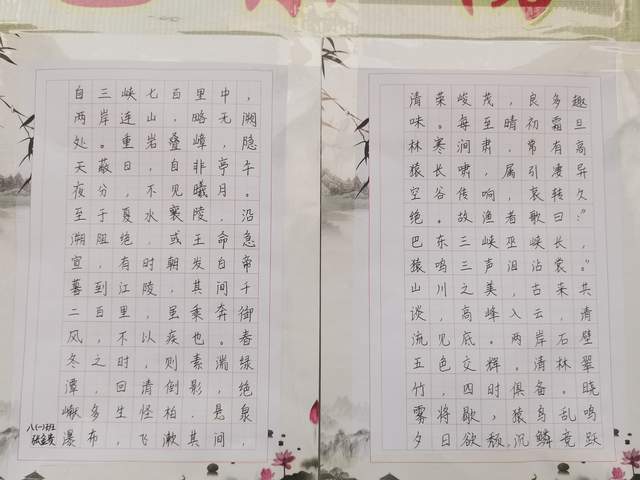 自三峡七百里中，
两岸连山，略无阙
处。重岩叠嶂，隐
天蔽日，自非亭午
夜分，不见曦月。
至于夏水襄陵，沿
溯阻绝，或王命急
宣，有时朝发白帝
暮到江陵，其间千
二百里，虽乘奔御
风，不以疾也。春
冬之时，则素湍绿
潭，回清倒影，绝
巘多生怪柏，悬泉
瀑布，飞漱其间，
八(一)班
清荣峻茂，良多趣
味。每至晴初霜旦
林寒涧肃，常有高
猿长啸，属引凄异
空谷传响，哀转久
绝。故渔者歌曰：“
巴东三峡巫峡长，
猿鸣三声泪沾裳。”
山川之美，古来共
谈，高峰入云，清
流见底。两岸石壁
五色交辉，清林翠
竹，四时俱备。晓
雾将歇，猿鸟乱鸣
夕日欲颓，沉鳞竞跃